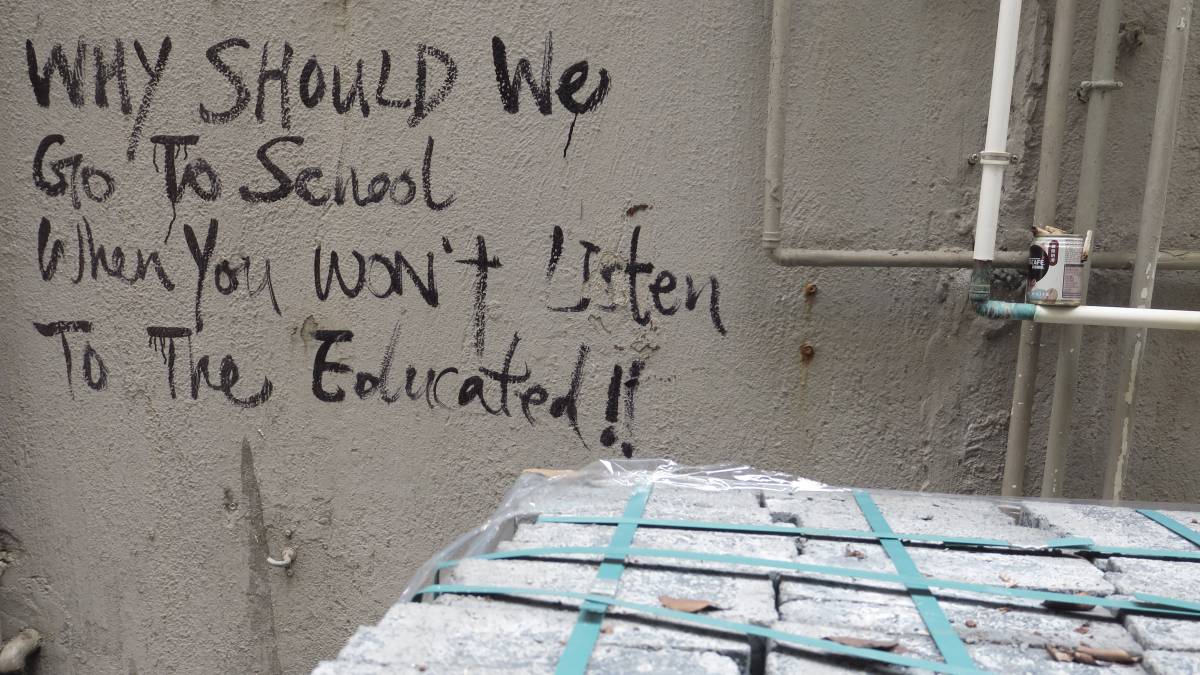 WHY SHOULD We
Go To School
When You WON't Listen
To The Educated!!